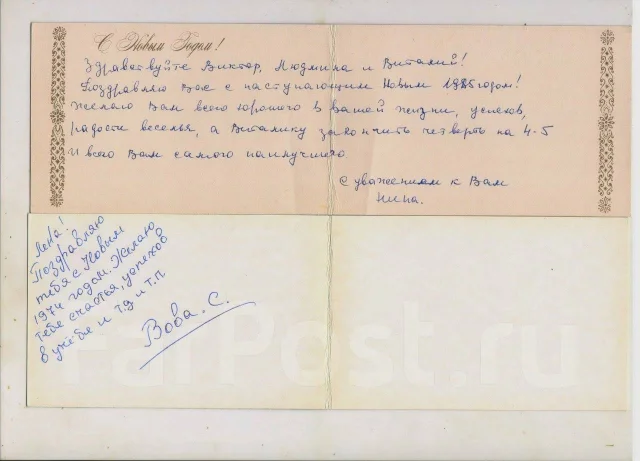 С Новым Годом!
Здравствуйте Виктор, Людмила и Виталий!
Поздравляю Вас с наступающим Новым 1985 годом!
Желаю Вам всего хорошего в Вашей жизни, успехов,
радости веселья, а Виталику закончить четверть на 4-5
и всего Вам самого наилучшего
С уважением к Вам
Нина.
Лена!
Поздравляю
тебя с Новым
1974 годом. Желаю
тебе счастья, успехов
в учёбе и т.д и т.п
Вова. С.
FarPost.ru